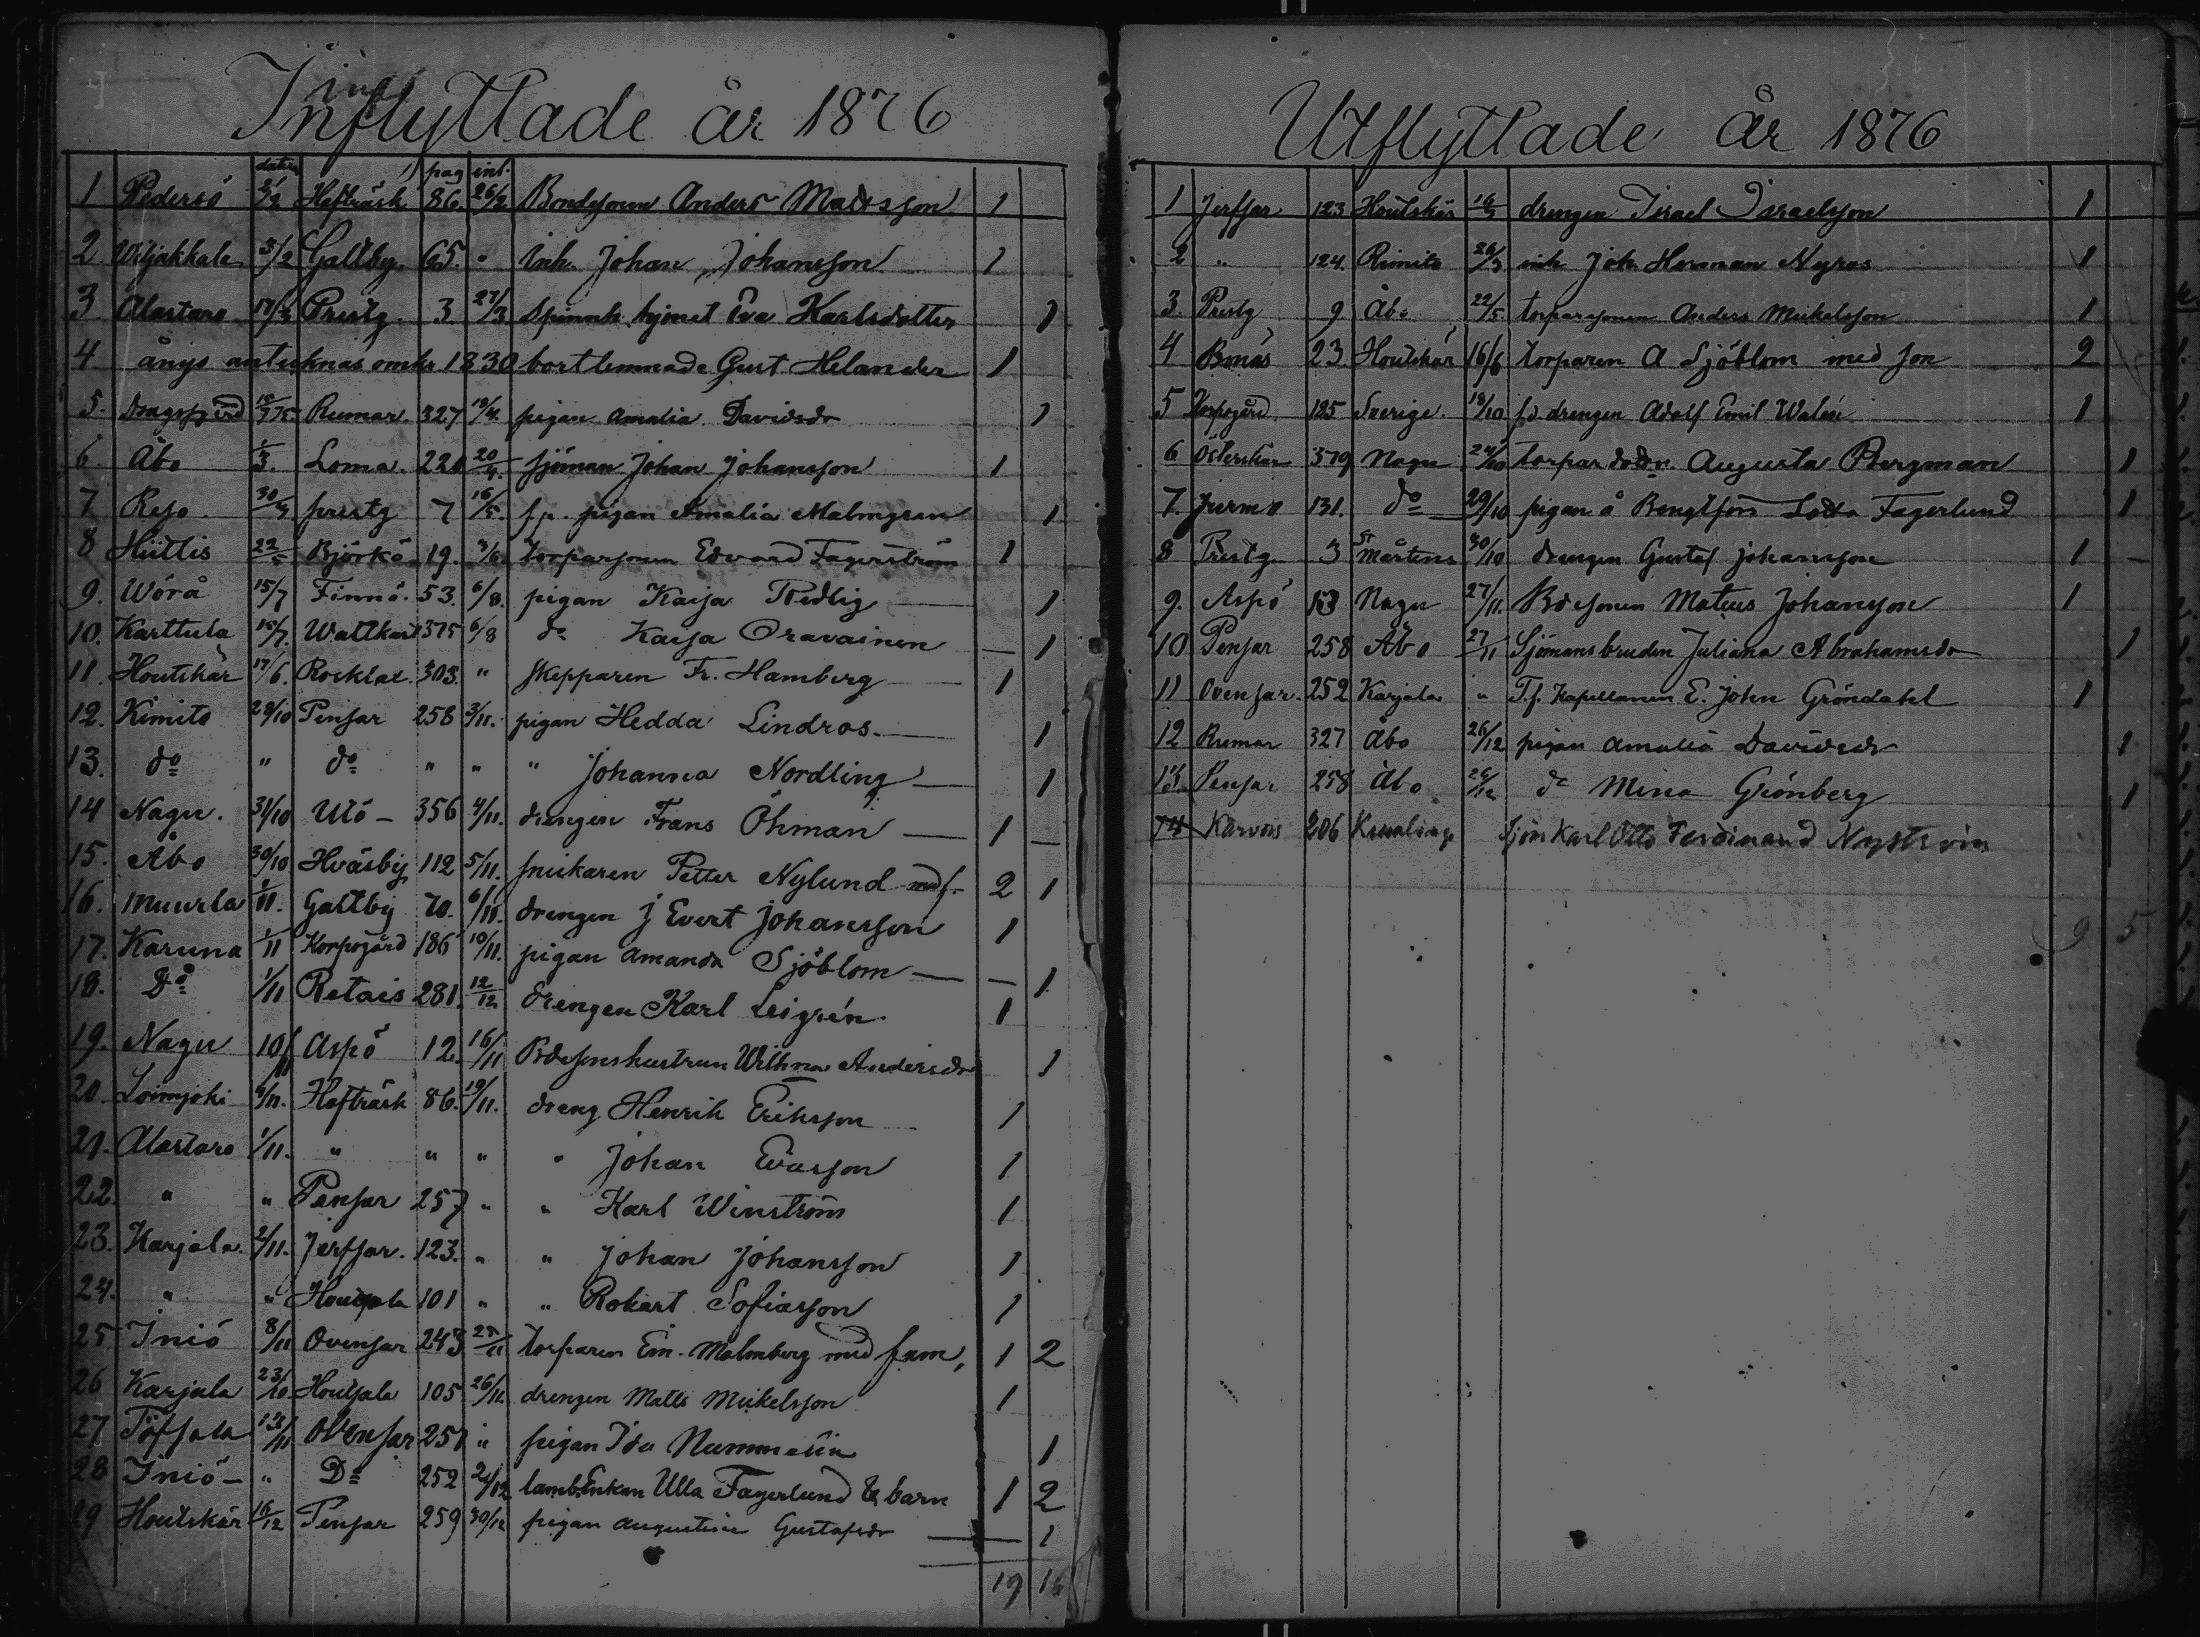 Inflyttade år 1876
datum pag int.
1 Pedersö 2/2 Hefträsk 86. 26/2 Bondesonen Anders Mattsson 1
2. Viljakkala 3/2 Galtby. 65. " Inh. Johan Johansson 1
3. Alastaro 17/3 Prestg. 3 27/3 spinnh. hjonet Eva Karlsdotter 1
4 ånyo antecknas omkr 1830 bortlemnade Gust Helander 1
5. Dragsfjerd 15/775 Rumar. 327 18/4. pigan Amalia Davidsdr 1
6. Åbo 1/3. Loma. 220 20/4. sjöman Johan Johansson 1
7 Reso 30/3 prestg 7 16/5. pigan Amalia Malmgren 1
8 Hiittis 22/5 Björkö 19. 3/6. torparsonen Edvard Fagerström 1
9. Wörå 15/7 Finnö. 53. 6/8. pigan Kaisa Redlig 1
10. Karttula 15/7. Wattkast 375 6/8 do Kaisa Oravainen 1
11. Houtskär 17/6. Rosklax. 303. " skepparen Fr. Hamberg 1
12. Kimito 29/10 Pensar 258 3/11. pigan Hedda Lindros. 1
13. do " do " " " Johanna Nordling 1
14 Nagu. 31/10 Utö 356 4/11. drengen Frans Öhman 1
15. Åbo 30/10 Hväsby 112 5/11. snickaren Petter Nylund med f. 2 1
16. Muurla 1/11. Galtby 70. 6/11. drengen J Evert Johansson 1
17. Karuna 1/11 Korpogård 186 10/11. pigan Amanda Sjöblom 1
18. Do 1/11 Retais 281. 12/12 drengen Karl 1
19. Nagu 10/11 Aspö 12. 16/11 Bdesonshustrun Wilhma Andersdr 1
20. Loimjoki 9/11. Hefträsk 86. 19/11. dreng Henrik Eriksson 1
21. Alastaro 1/11. " " " " Johan Evasson 1
22. " " Pensar 257 " " Karl Winström 1
23. Karjala. 2/11. Jerfsar. 123. " " Johan Johansson 1
24. " " Houtsala 101 " " Robert Sofiasson 1
25 Iniö 8/11 Ovensar 243 25/11 torparen Em. Malmberg med fam, 1 2
26 Karjala 23/10 Houtsala 105 26/11. drengen Matts Mickelsson 1
27 Töfsala 13/11 Ovensar 251 " pigan Ida Nummelin 1
28 Iniö " Do 252 2/12 Enkan Ulla Fagerlund & barn 1 2
29 Houtskär 16/12 Pensar 259 30/12 pigan Augustina Gustafsdr 1
19 16
Utflyttade år 1876
1 Jerfsar 123 Houtskär 18/3 drengen Israel Israelsson 1
2 " 124. Rimito 26/3 inh Joh Herman Nyroos 1
3. Prestg 9 Åbo 22/5. torparsonen Anders Mickelsson 1
4 Bonäs 23. Houtskär 16/6 torparen A Sjöblom med son 2
5 Korpogård 185 Sverige. 18/10 f.d. drengen Adolf Emil Walén 1
6 Österskär 379 Nagu 24/10 torpardodr. Augusta Bergman 1
7. Jurmo 131. do 29/10 pigan å Bengtsfors Lotta Fagerlund 1
8 Prestg 3 St Mårtens 30/10 drengen Gustaf Johansson 1
9. Aspö 153 Nagu 27/11. Bdesonen Mateus Johansson 1
10 Pensar 258 Åbo 27/11 Sjömansbruden Juliana Abrahamsdr 1
11 Ovensar. 252 Karjala " T.f. Kapellanen E. John Gröndahl 1
12 Rumar 327 Åbo 26/12 pigan Amalia Davidsdr 1
13. Pensar 258 Åbo 26/12 do Mina Grönberg 1
14 Karvois 206 Kumlinge Sjöm Karl Otto Ferdinand Nyström
9 5